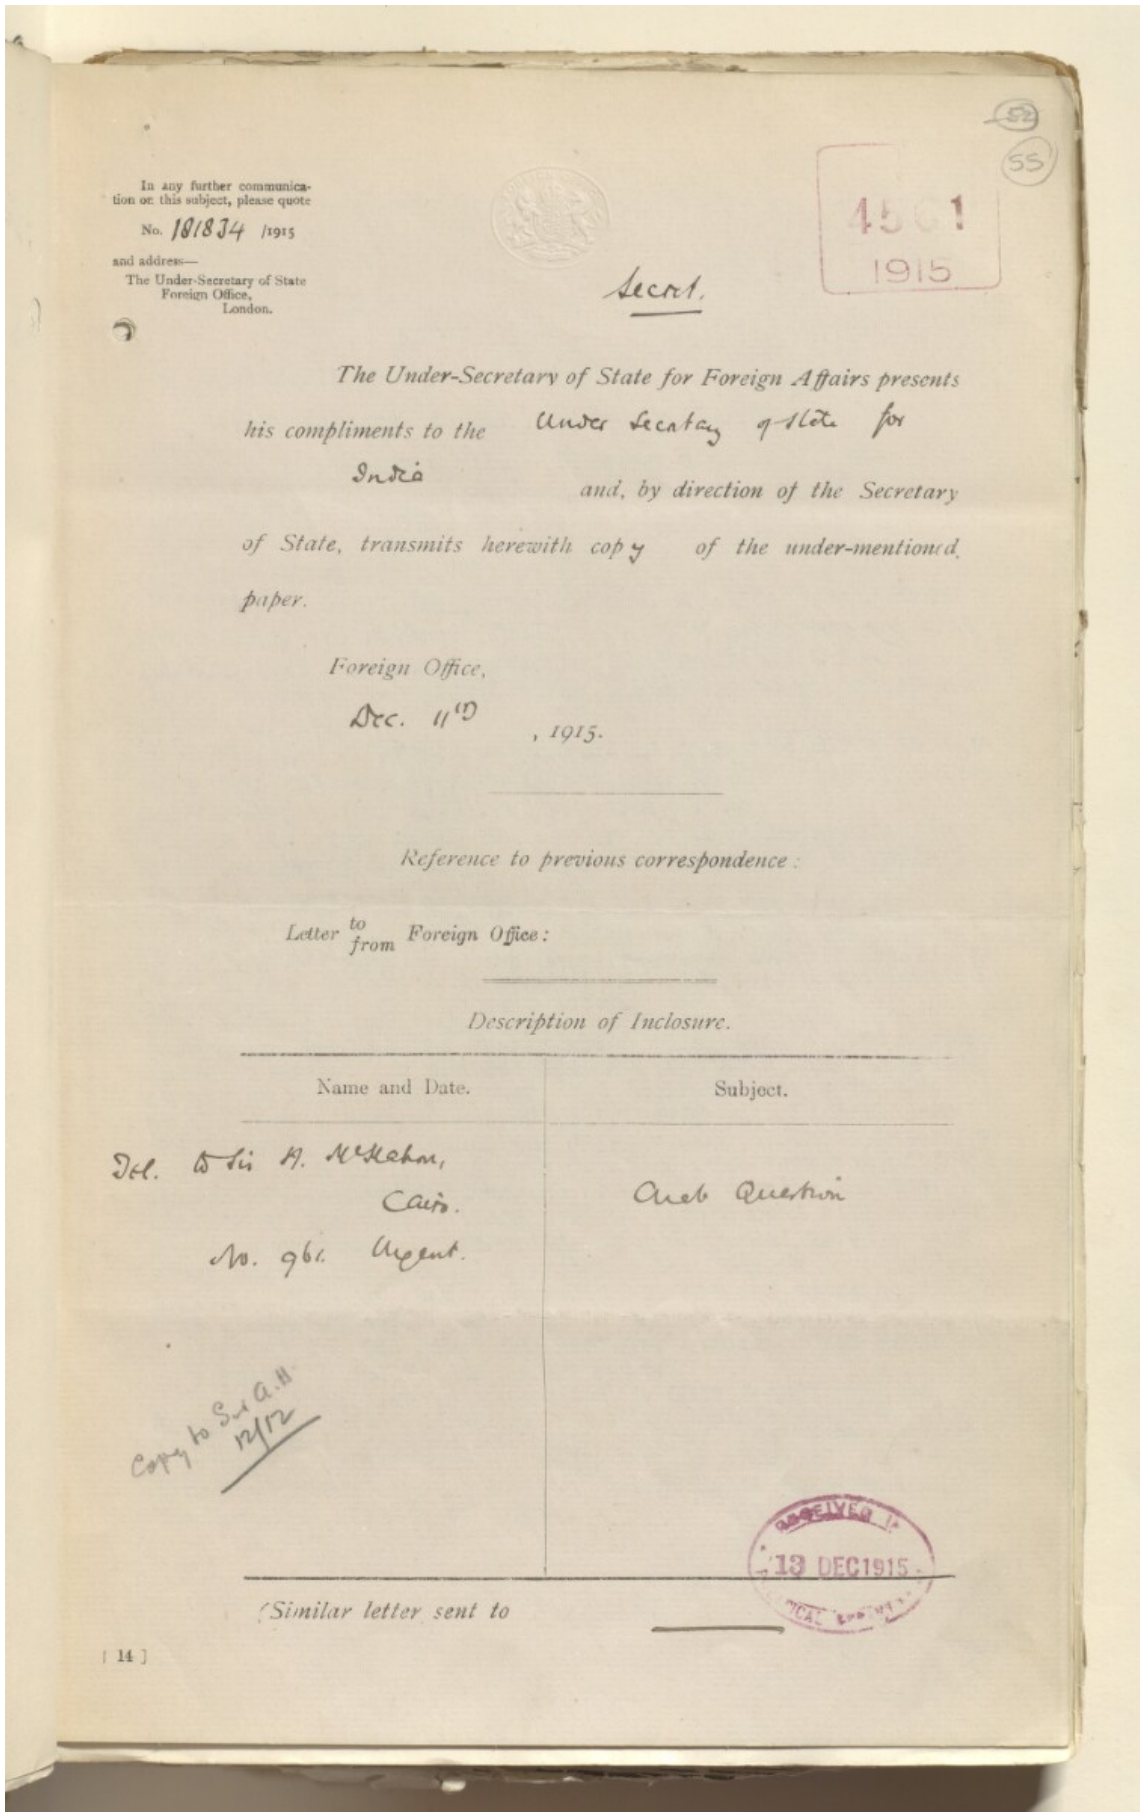 52
55
In any further communica-
tion on this subject, please quote
No. 181834 /1915
and address—
The Under-Secretary of State
Foreign Office,
London.
4561
1915
Secret.
The Under-Secretary of State for Foreign Affairs presents
his compliments to the Under Secretary of State for
India and, by direction of the Secretary
of State, transmits herewith copy of the under-mentioned
paper.
Foreign Office,
Dec. 11th, 1915.
Reference to previous correspondence:
Letter to from Foreign Office:
Description of Inclosure.
Name and Date. Subject.
Tel. to Sir H. McMahon,
Cairo. Arab Question
No. 961. Urgent.
Copy to Sir A.H.
12/12
RECEIVED
13 DEC 1915
(Similar letter sent to
[14]